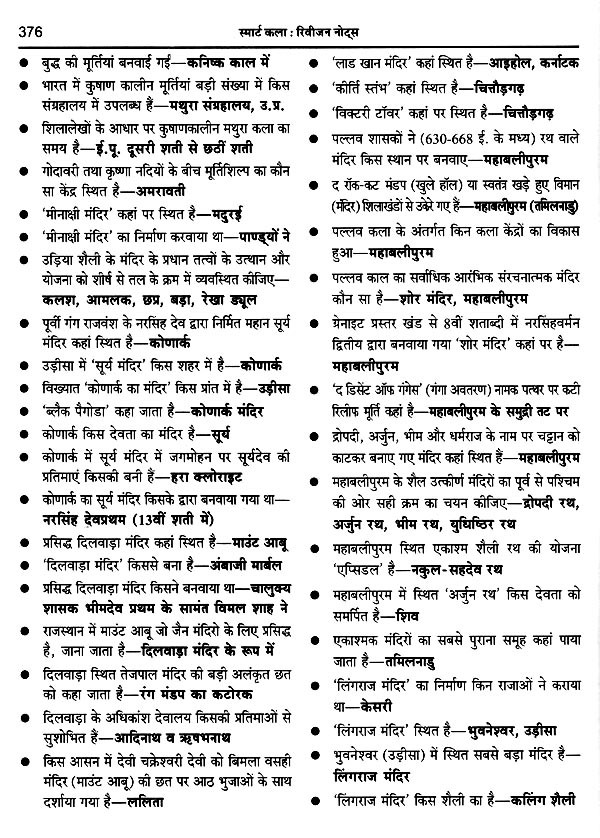 376
स्मार्ट कला : रिवीजन नोट्स
● बुद्ध की मूर्तियां बनवाई गईं—कनिष्क काल में
● भारत में कुषाण कालीन मूर्तियां बड़ी संख्या में किस
संग्रहालय में उपलब्ध हैं—मथुरा संग्रहालय, उ.प्र.
● शिलालेखों के आधार पर कुषाणकालीन मथुरा कला का
समय है—ई.पू. दूसरी शती से छठीं शती
● गोदावरी तथा कृष्णा नदियों के बीच मूर्तिशिल्प का कौन
सा केंद्र स्थित है—अमरावती
● 'मीनाक्षी मंदिर' कहां पर स्थित है—मदुरई
● 'मीनाक्षी मंदिर' का निर्माण करवाया था—पाण्ड्यों ने
● उड़िया शैली के मंदिर के प्रधान तत्वों के उत्थान और
योजना को शीर्ष से तल के क्रम में व्यवस्थित कीजिए—
कलश, आमलक, छप्र, बड़ा, रेखा ड्यूल
● पूर्वी गंग राजवंश के नरसिंह देव द्वारा निर्मित महान सूर्य
मंदिर कहां स्थित है—कोणार्क
● उड़ीसा में 'सूर्य मंदिर' किस शहर में है—कोणार्क
● विख्यात 'कोणार्क का मंदिर' किस प्रांत में है—उड़ीसा
● 'ब्लैक पैगोडा' कहा जाता है—कोणार्क मंदिर
● कोणार्क किस देवता का मंदिर है—सूर्य
● कोणार्क में सूर्य मंदिर में जगमोहन पर सूर्यदेव की
प्रतिमाएं किसकी बनी हैं—हरा क्लोराइट
● कोणार्क का सूर्य मंदिर किसके द्वारा बनवाया गया था—
नरसिंह देवप्रथम (13वीं शती में)
● प्रसिद्ध दिलवाड़ा मंदिर कहां स्थित है—माउंट आबू
● 'दिलवाड़ा मंदिर' किससे बना है—अंबाजी मार्बल
● प्रसिद्ध दिलवाड़ा मंदिर किसने बनवाया था—चालुक्य
शासक भीमदेव प्रथम के सामंत विमल शाह ने
● राजस्थान में माउंट आबू जो जैन मंदिरो के लिए प्रसिद्ध
है, जाना जाता है—दिलवाड़ा मंदिर के रूप में
● दिलवाड़ा स्थित तेजपाल मंदिर की बड़ी अलंकृत छत
को कहा जाता है—रंग मंडप का कटोरक
● दिलवाड़ा के अधिकांश देवालय किसकी प्रतिमाओं से
सुशोभित हैं—आदिनाथ व ऋषभनाथ
● किस आसन में देवी चक्रेश्वरी देवी को बिमला वसही
मंदिर (माउंट आबू) की छत पर आठ भुजाओं के साथ
दर्शाया गया है—ललिता
● 'लाड खान मंदिर' कहां स्थित है—आइहोल, कर्नाटक
● 'कीर्ति स्तंभ' कहां स्थित है—चित्तौड़गढ़
● 'विक्टरी टॉवर' कहां पर स्थित है—चित्तौड़गढ़
● पल्लव शासकों ने (630-668 ई. के मध्य) रथ वाले
मंदिर किस स्थान पर बनवाए—महाबलीपुरम
● द रॉक-कट मंडप (खुले हॉल) या स्वतंत्र खड़े हुए विमान
(मंदिर) शिलाखंडों से उकेरे गए हैं—महाबलीपुरम (तमिलनाडु)
● पल्लव कला के अंतर्गत किन कला केंद्रों का विकास
हुआ—महाबलीपुरम
● पल्लव काल का सर्वाधिक आरंभिक संरचनात्मक मंदिर
कौन सा है—शोर मंदिर, महाबलीपुरम
● ग्रेनाइट प्रस्तर खंड से 8वीं शताब्दी में नरसिंहवर्मन
द्वितीय द्वारा बनवाया गया 'शोर मंदिर' कहां पर है—
महाबलीपुरम
● 'द डिसेंट ऑफ गंगेस' (गंगा अवतरण) नामक पत्थर पर कटी
रिलीफ मूर्ति कहां है—महाबलीपुरम के समुद्री तट पर
● द्रोपदी, अर्जुन, भीम और धर्मराज के नाम पर चट्टान को
काटकर बनाए गए मंदिर कहां स्थित हैं—महाबलीपुरम
● महाबलीपुरम के शैल उत्कीर्ण मंदिरों का पूर्व से पश्चिम
की ओर सही क्रम का चयन कीजिए—द्रोपदी रथ,
अर्जुन रथ, भीम रथ, युधिष्ठिर रथ
● महाबलीपुरम स्थित एकाश्म शैली रथ की योजना
'एप्सिडल' है—नकुल-सहदेव रथ
● महाबलीपुरम में स्थित 'अर्जुन रथ' किस देवता को
समर्पित है—शिव
● एकाश्मक मंदिरों का सबसे पुराना समूह कहां पाया
जाता है—तमिलनाडु
● 'लिंगराज मंदिर' का निर्माण किन राजाओं ने कराया
था—केसरी
● 'लिंगराज मंदिर' स्थित है—भुवनेश्वर, उड़ीसा
● भुवनेश्वर (उड़ीसा) में स्थित सबसे बड़ा मंदिर है—
लिंगराज मंदिर
● 'लिंगराज मंदिर' किस शैली का है—कलिंग शैली